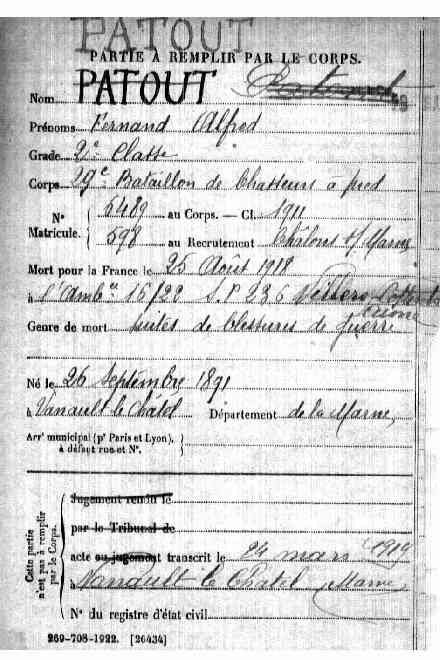 PATOUT
PARTIE À REMPLIR PAR LE CORPS.
Nom PATOUT
Prénoms Fernand Alfred
Grade 2e Classe
Corps 29e Bataillon de Chasseurs à pied
N° Matricule. { 5489 au Corps. — Cl. 1911
598 au Recrutement Châlons s/ Marne
Mort pour la France le 25 Août 1918
à l'Ambce 16/22 S.P 236 Villers
Genre de mort suites de blessures de guerre
Né le 26 Septembre 1891
à Vanault le Châtel Département de la Marne
Arrt municipal (pr Paris et Lyon),
à défaut rue et N°.
Cette partie n'est pas à remplir par le Corps.
Jugement rendu le
par le Tribunal de
acte ou jugement transcrit le 24 mars 1919
à Vanault le Chatel Marne
N° du registre d'état civil
269-708-1922. [26434]